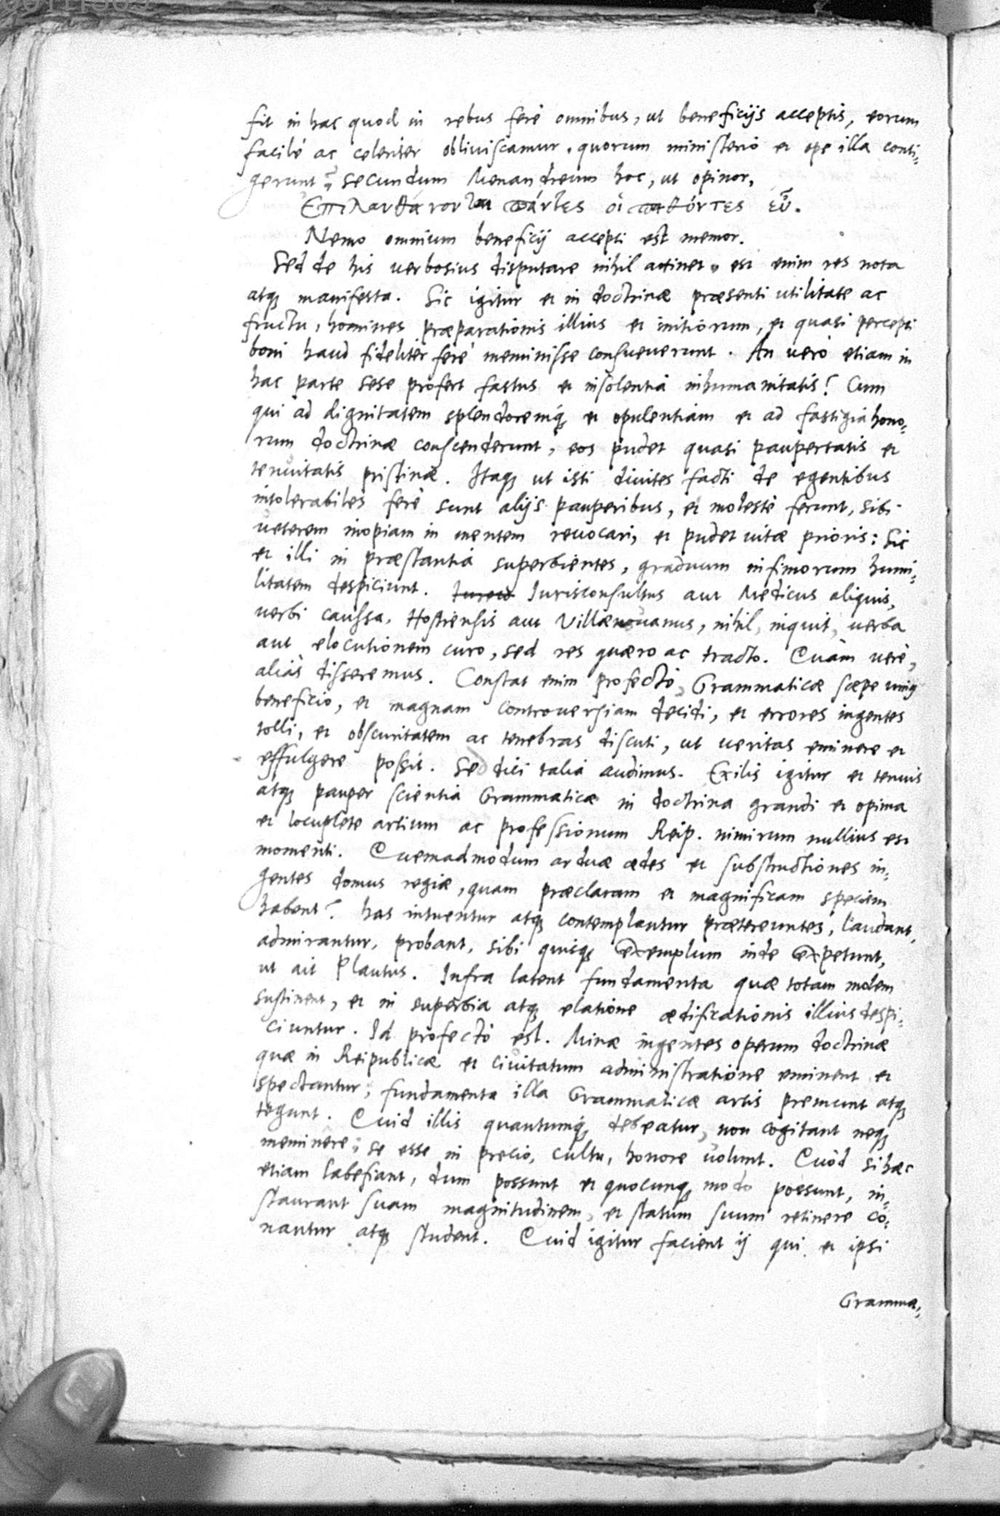 fit in hac quod in rebus ferè omnibus, ut beneficijs acceptis, eorum
facilè ac celeriter obliviscamur, quorum ministerio et ope illa conti-
gerunt, secundum Menandreum hoc, ut opinor,
Ἐπιλανθάνονται πάντες οἱ παθόντες εὖ.
Nemo omnium beneficij accepti est memor.
Sed de his verbosius disputare nihil attinet, est enim res nota
atq; manifesta. Sic igitur et in doctrinæ præsenti utilitate ac
fructu, homines præparationis illius et initiorum, et quasi percepti
boni haud fideliter ferè meminisse consueverunt. An verò etiam in
hac parte sese profert fastus et insolentia inhumanitatis? Cum
qui ad dignitatem splendoremq; et opulentiam et ad fastigia hono-
rum doctrinæ conscenderunt, eos pudet quasi paupertatis et
tenuitatis pristinæ. Itaq; ut isti divites facti de egentibus
intolerabiles ferè sunt alijs pauperibus, et molestè ferunt, sibi
veterem inopiam in mentem revocari, et pudet vitæ prioris: Sic
et illi in præstantia superbientes, graduum infimorum humi-
litatem despiciunt. Jurisconsultus aut Medicus aliquis,
verbi caussa, Hostiensis aut Villanovanus, nihil, inquit, verba
aut elocutionem curo, sed res quæro ac tracto. Quàm verè,
aliàs disseremus. Constat enim profectò, Grammaticæ sæpe unius
beneficio, et magnam controversiam decidi, et errores ingentes
tolli, et obscuritatem ac tenebras discuti, ut veritas eminere et
effulgere possit. Sed dici talia audimus. Exilis igitur et tenuis
atq; pauper scientia Grammaticæ in doctrina grandi et opima
et locuplete artium ac professionum Reip. nimirum nullius est
momenti. Quemadmodum arduæ ædes et substructiones in-
gentes domus regiæ, quam præclaram et magnificam speciem
habent? has intuentur atq; contemplantur prætereuntes, laudant,
admirantur, probant, sibi quisq; exemplum inde expetunt,
ut ait Plautus. Infra latent fundamenta quæ totam molem
sustinent, et in superbia atq; elatione ædificationis illius despi-
ciuntur. Id profectò est. Minæ ingentes operum doctrinæ
quæ in Reipublicæ et civitatum administratione eminent et
spectantur, fundamenta illa Grammaticæ artis premunt atq;
tegunt. Quid illis quantumq; debeatur, non cogitant neq;
meminere; se esse in precio, cultu, honore volunt. Quòd si hæc
etiam labefiant, dum possunt et quocunq; modo possunt, in-
staurant suam magnitudinem, et statum suum retinere co-
nantur atq; student. Quid igitur facient ij qui et ipsi
Gramma-